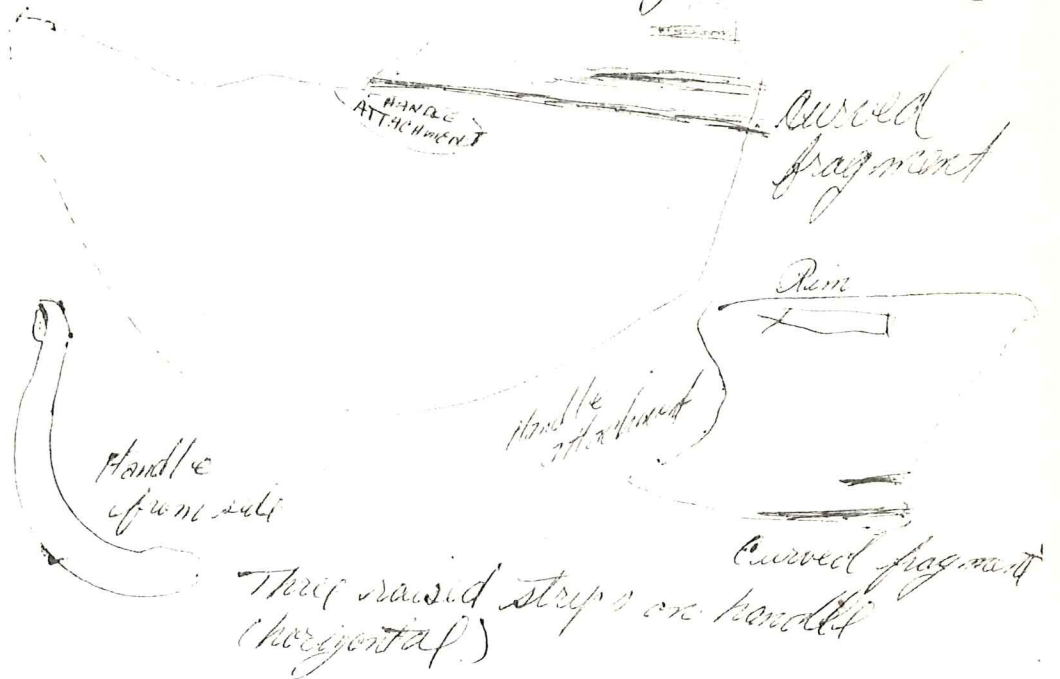 HANDLE
ATTACHMENT
curved
fragment
Rim
Handle
attachment
Handle
from side
Curved fragment
Three raised strips on handle
(horizontal)